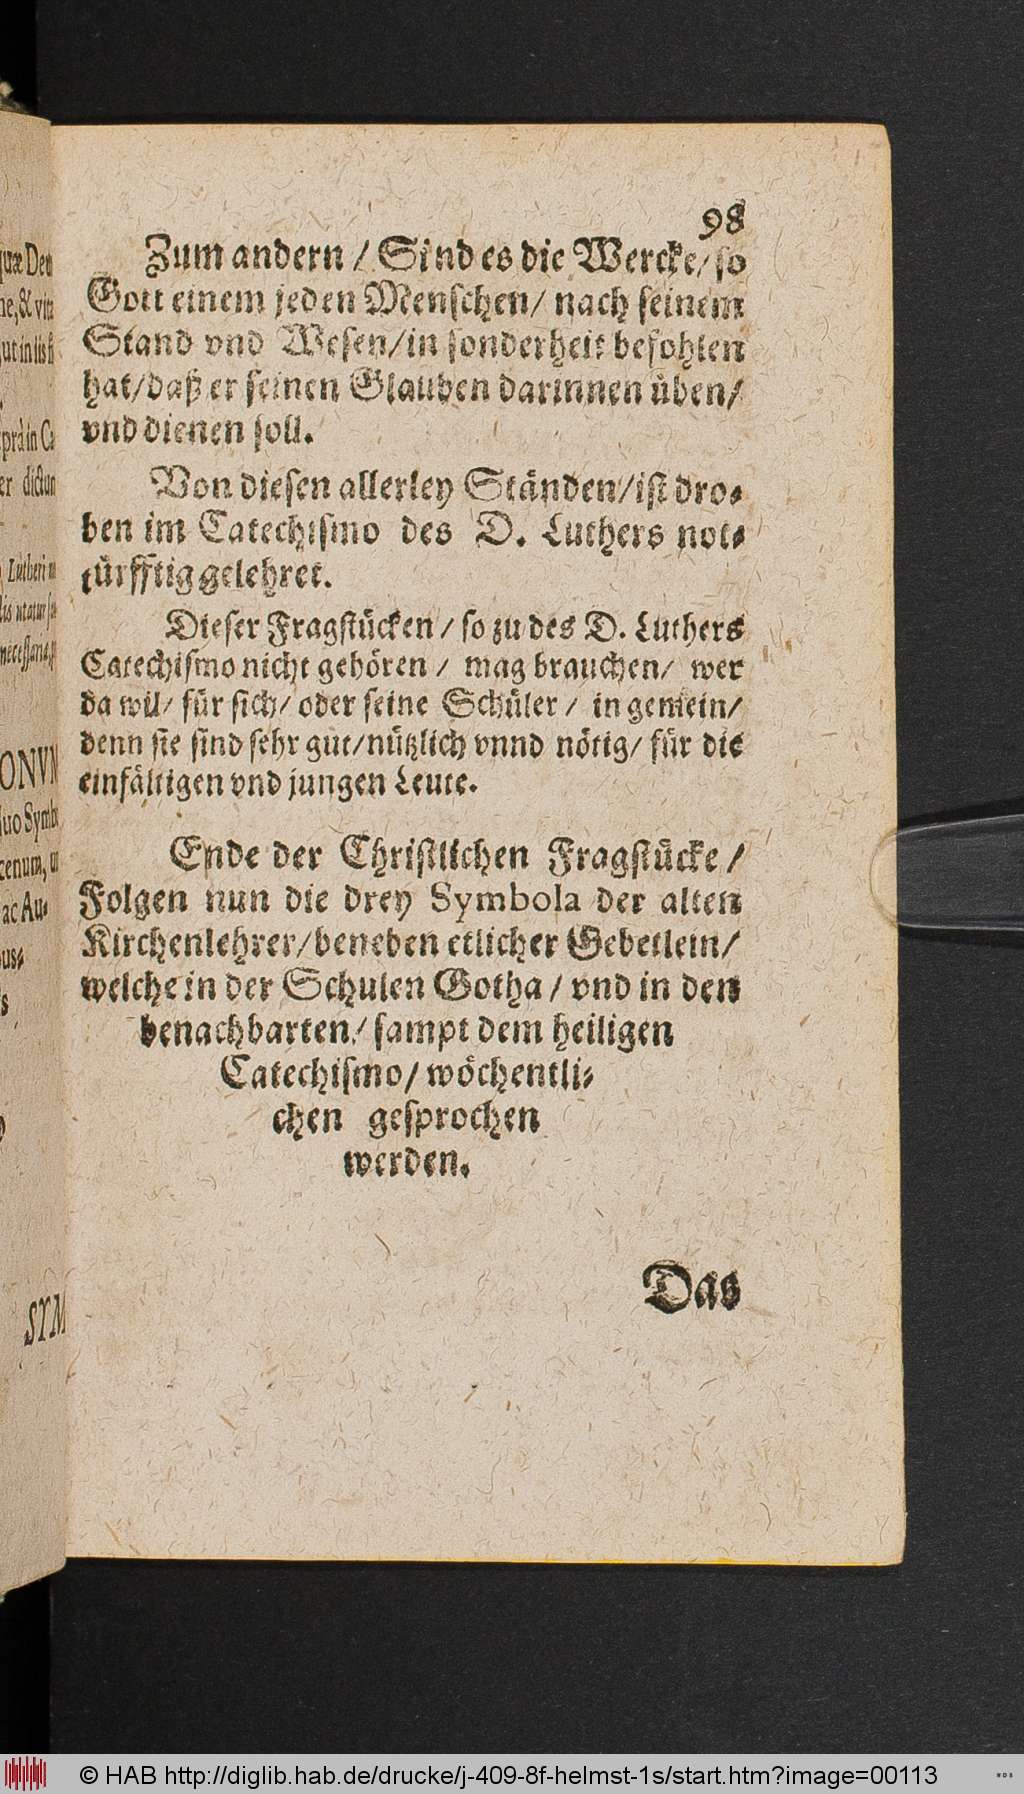 98
Zum andern / Sind es die Wercke / so
Gott einem jeden Menschen / nach seinem
Stand vnd Wesen / in sonderheit befohlen
hat / daß er seinen Glauben darinnen üben /
vnd dienen soll.
Von diesen allerley Ständen / ist dro-
ben im Catechismo des D. Luthers not-
türfftig gelehret.
Dieser Fragstücken / so zu des D. Luthers
Catechismo nicht gehören / mag brauchen / wer
da wil / für sich / oder seine Schüler / in gemein /
denn sie sind sehr gut / nützlich vnnd nötig / für die
einfältigen vnd jungen Leute.
Ende der Christlichen Fragstücke /
Folgen nun die drey Symbola der alten
Kirchenlehrer / beneben etlicher Gebetlein /
welche in der Schulen Gotha / vnd in den
benachbarten / sampt dem heiligen
Catechismo / wöchentli-
chen gesprochen
werden.
Das
© HAB http://diglib.hab.de/drucke/j-409-8f-helmst-1s/start.htm?image=00113